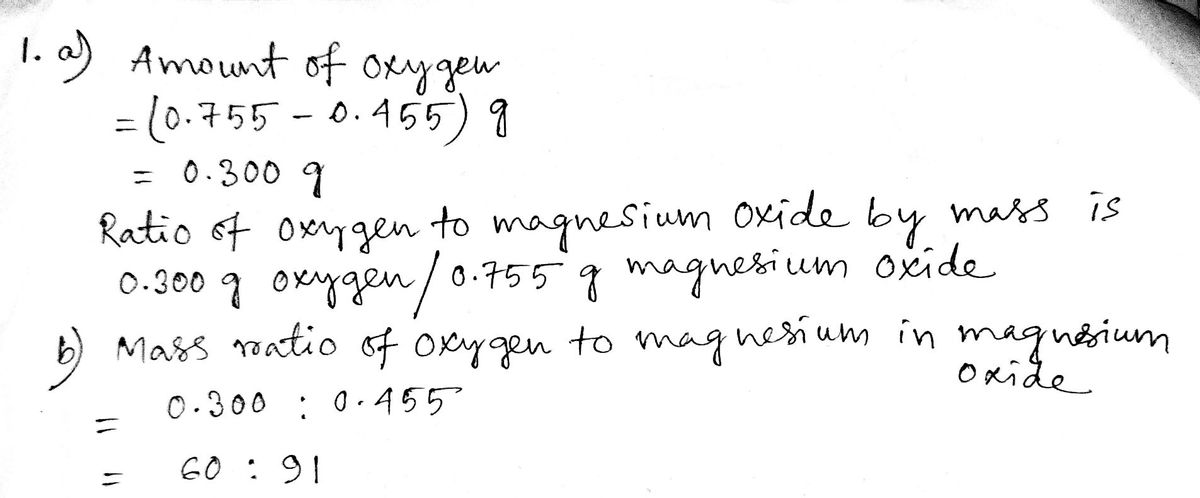 1. a) Amount of oxygen
= (0.755 - 0.455) g
= 0.300 g
Ratio of oxygen to magnesium oxide by mass is
0.300 g oxygen / 0.755 g magnesium oxide
b) Mass ratio of oxygen to magnesium in magnesium
oxide
= 0.300 : 0.455
= 60 : 91